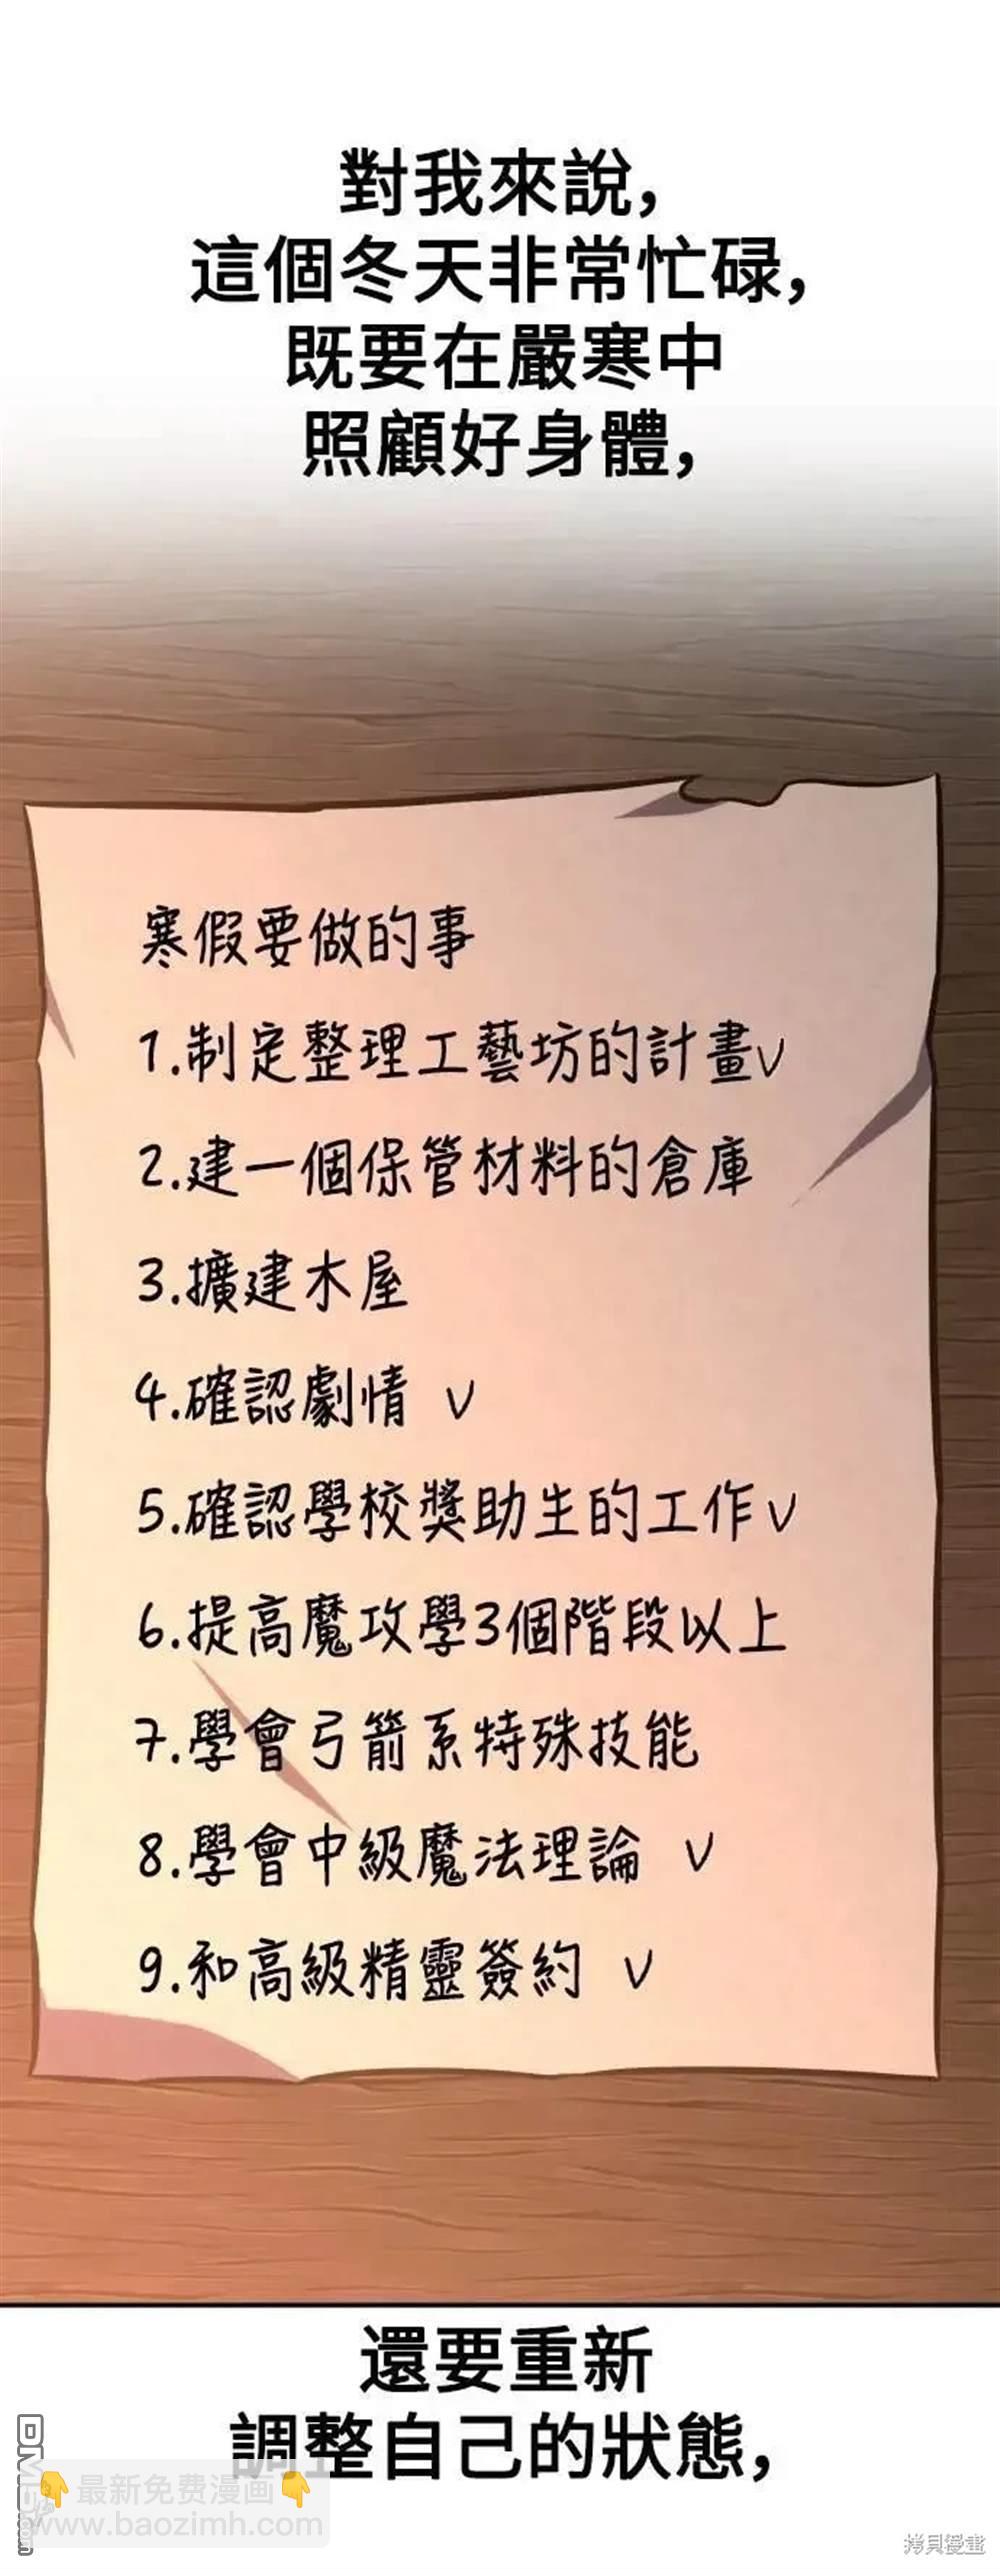 對我來說,
這個冬天非常忙碌,
既要在嚴寒中
照顧好身體,
寒假要做的事
1.制定整理工藝坊的計畫V
2.建一個保管材料的倉庫
3.擴建木屋
4.確認劇情 V
5.確認學校獎助生的工作V
6.提高魔攻學3個階段以上
7.學會弓箭系特殊技能
8.學會中級魔法理論 V
9.和高級精靈簽約 V
還要重新
調整自己的狀態,
👇最新免费漫画👇
baozimh.com
拷貝漫畫